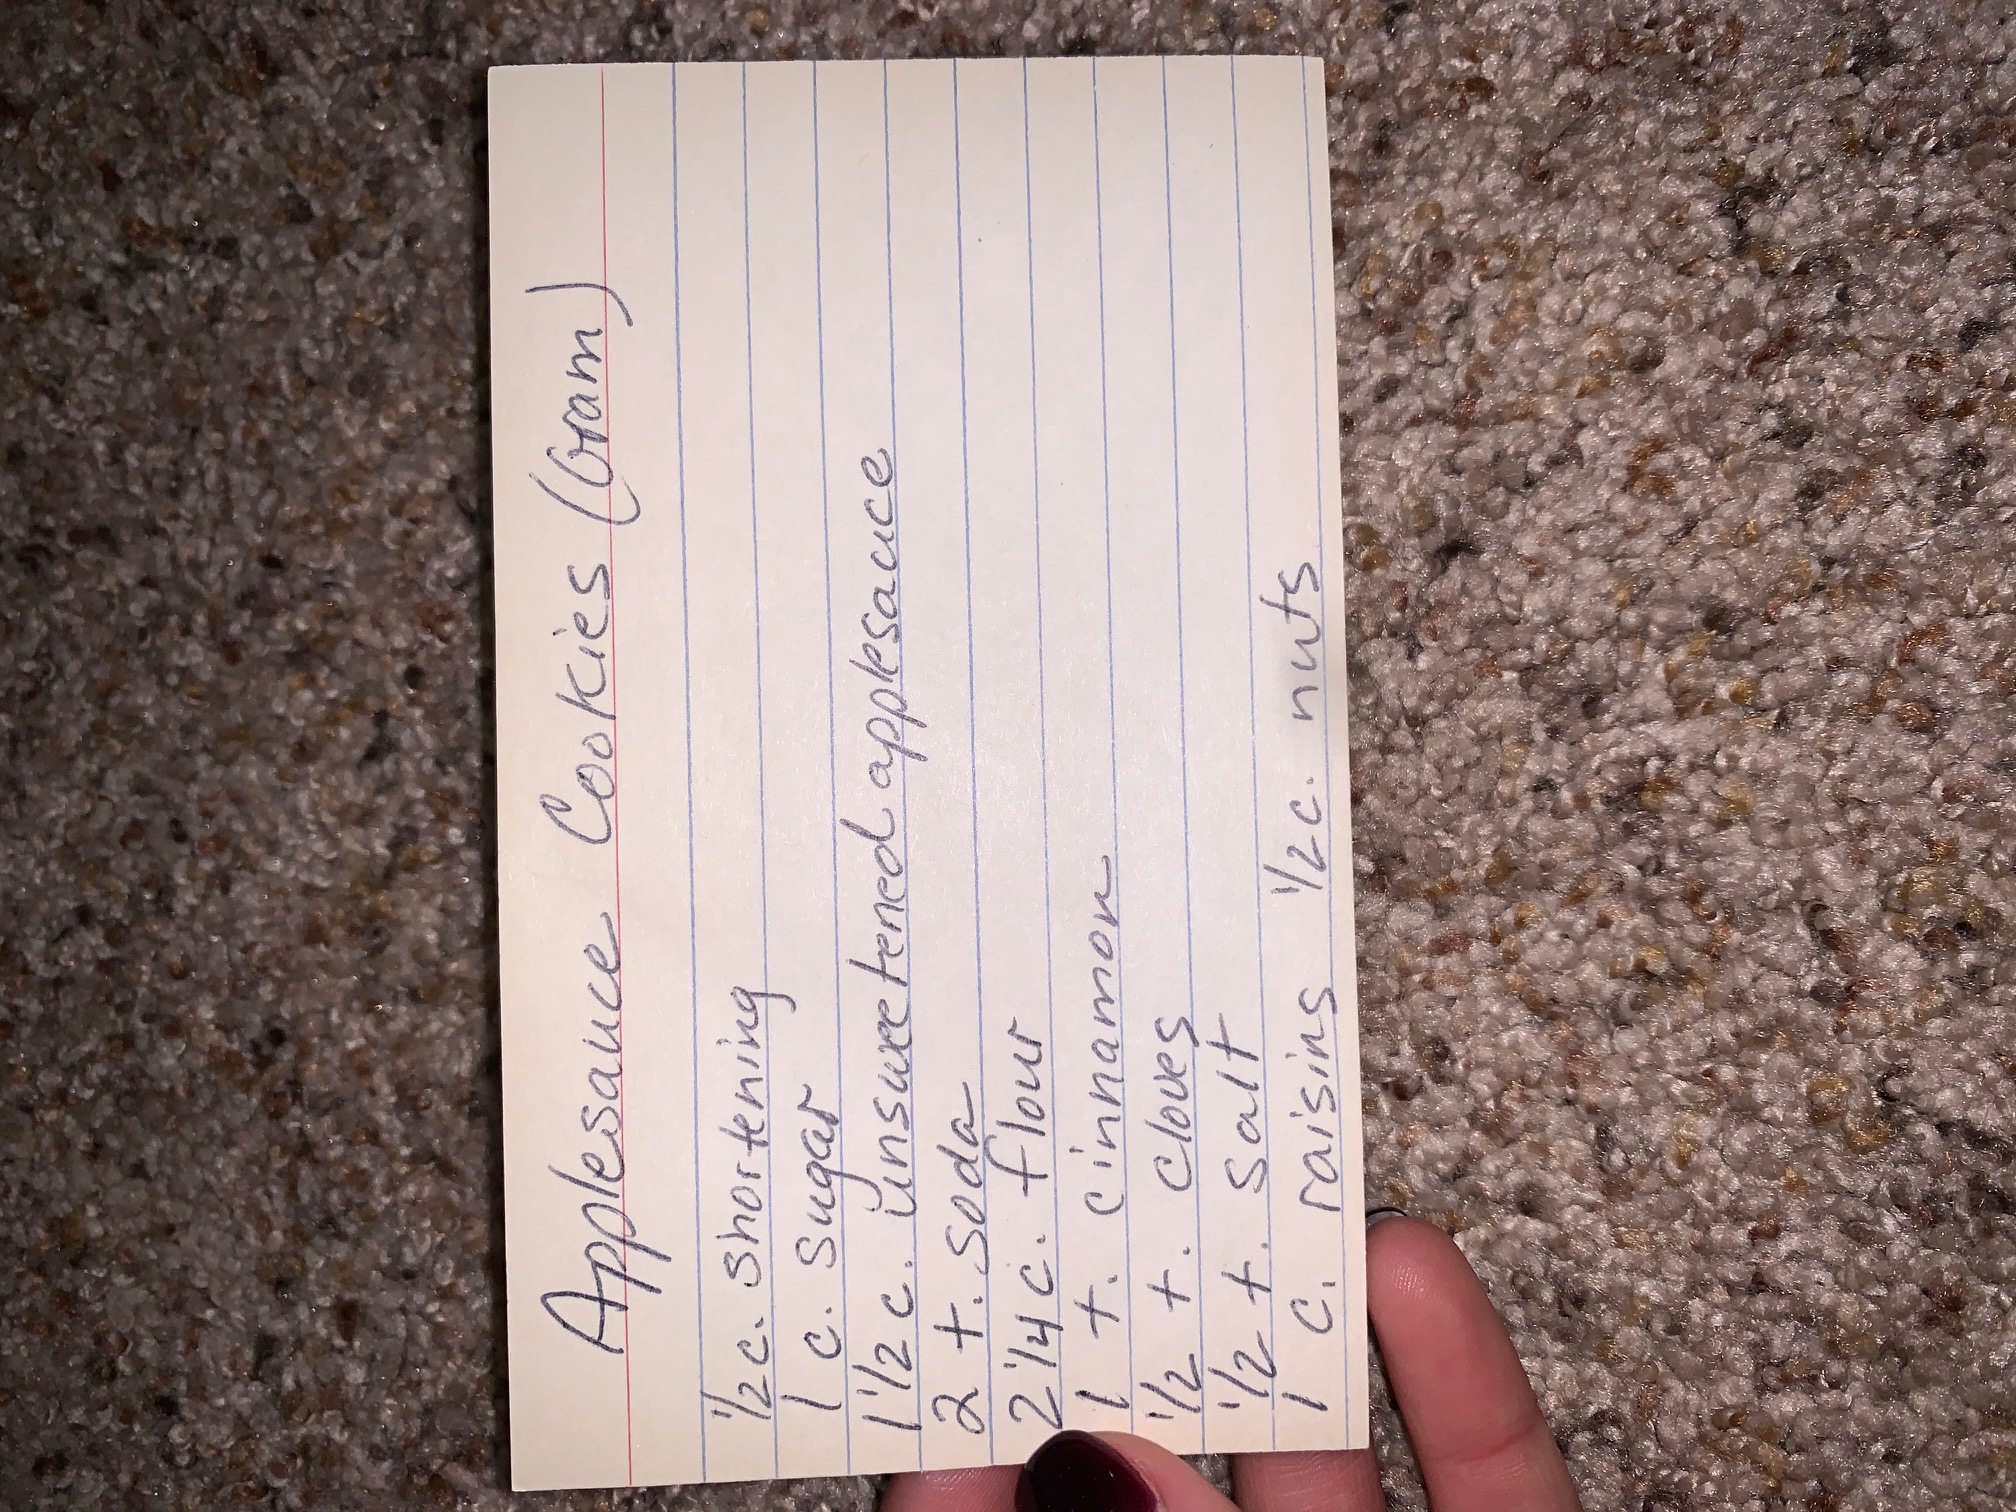 Applesauce Cookies (Gram)
1/2 c. shortening
1 c. sugar
1 1/2 c. unsweetened applesauce
2 t. soda
2 1/4 c. flour
1 t. cinnamon
1/2 t. cloves
1/2 t. salt
1 c. raisins 1/2 c. nuts